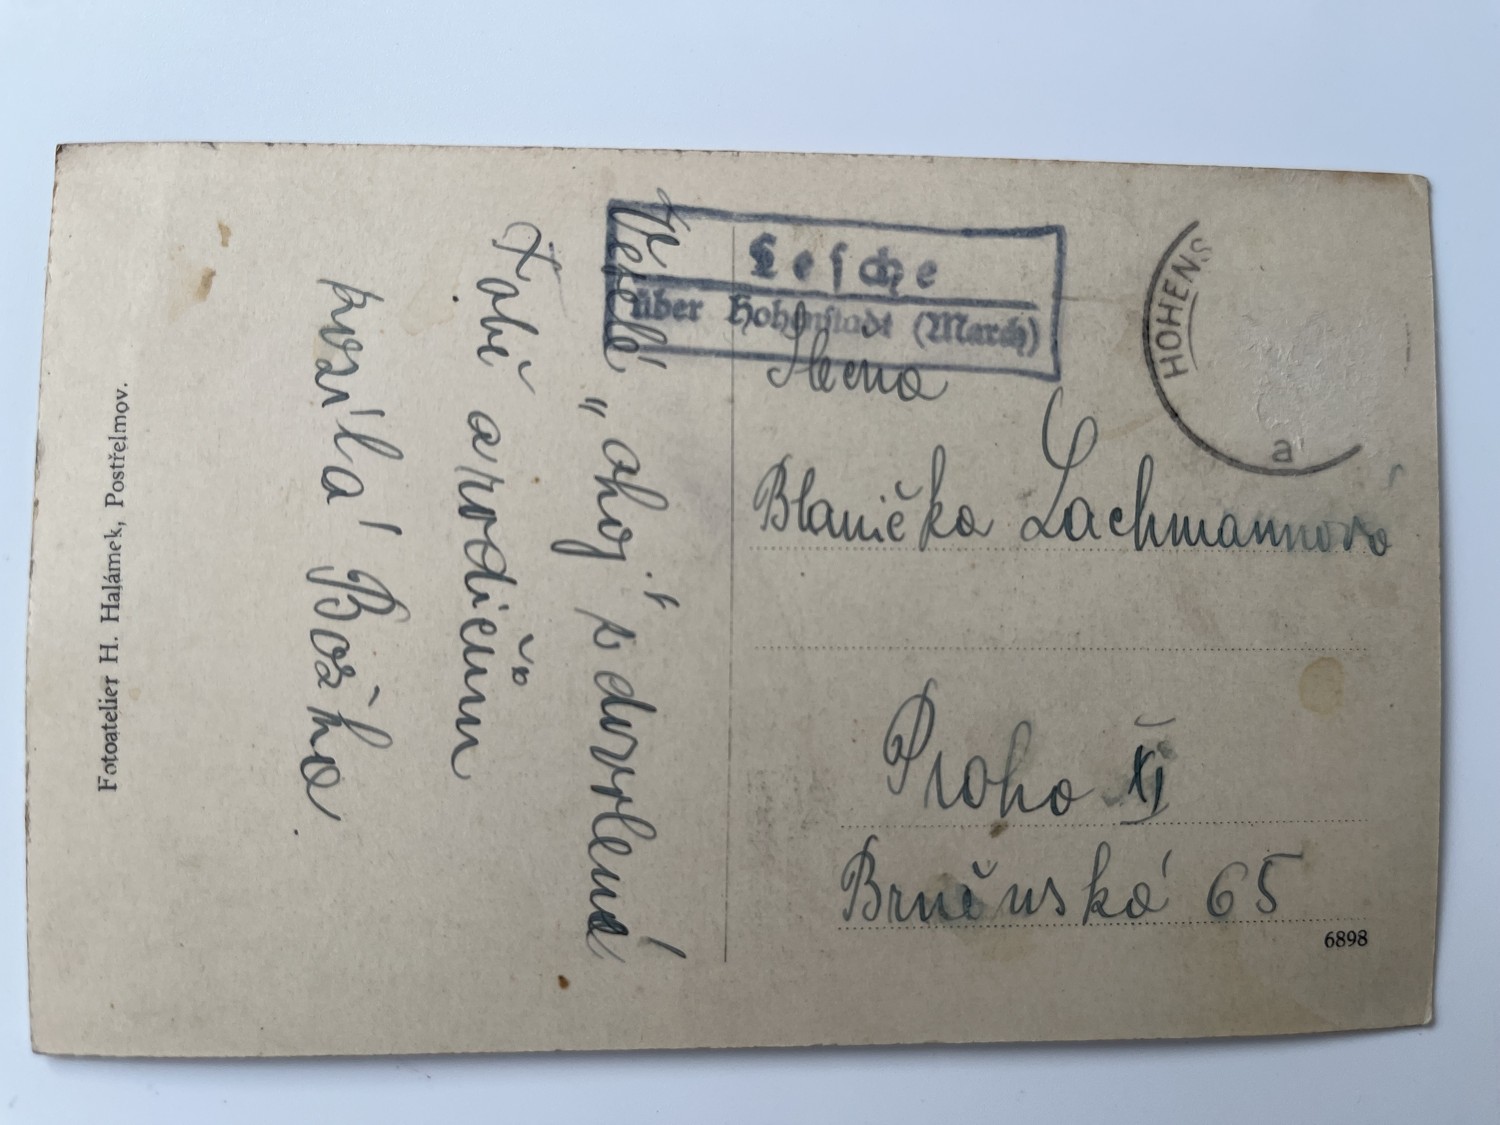 Veselé
"ahoj" z dovolené
Tobě a rodičům
posílá Božka
Fotoatelier H. Halámek, Postřelmov.
Lesche
über Hohenstadt (March)
HOHENS
a
Slečna
Blanička Lachmannova
Praha XI
Brněnská 65
6898